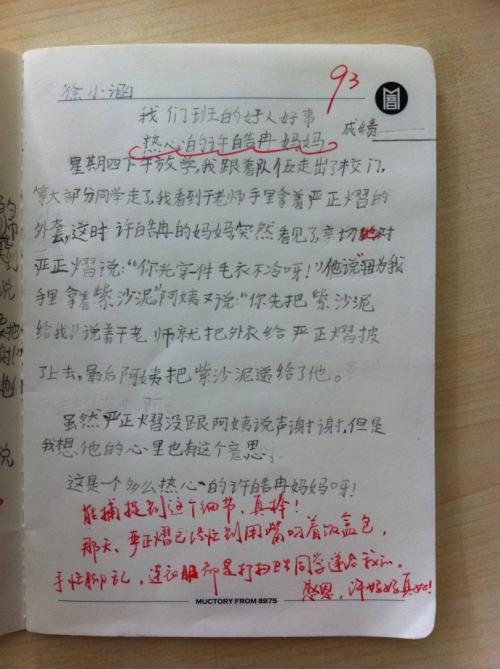 93
徐小涵
我们班的好人好事
成绩
热心的许皓冉妈妈
星期四下午放学,我跟着队伍走出了校门,
等大部分同学走了,我看到于老师手里拿着严正熠的
外套,这时许皓冉的妈妈突然看见了,亲切地对
严正熠说:“你光穿件毛衣不冷呀!”他说“因为我
手里拿着紫沙泥”阿姨又说:“你先把紫沙泥
给我!”说着于老师就把外衣给严正熠披
了上去。最后阿姨把紫沙泥递给了他。
虽然严正熠没跟阿姨说声谢谢,但是
我想,他的心里也有这个意思。
这是一个多么热心的许皓冉妈妈呀!
能捕捉到这个细节,真棒!
那天,严正熠已经忙到用嘴叼着饭盒包,
手忙脚乱,连衣服都是打扫卫生同学递给我的。
感恩,许妈妈真好!
MUCTORY FROM 8975